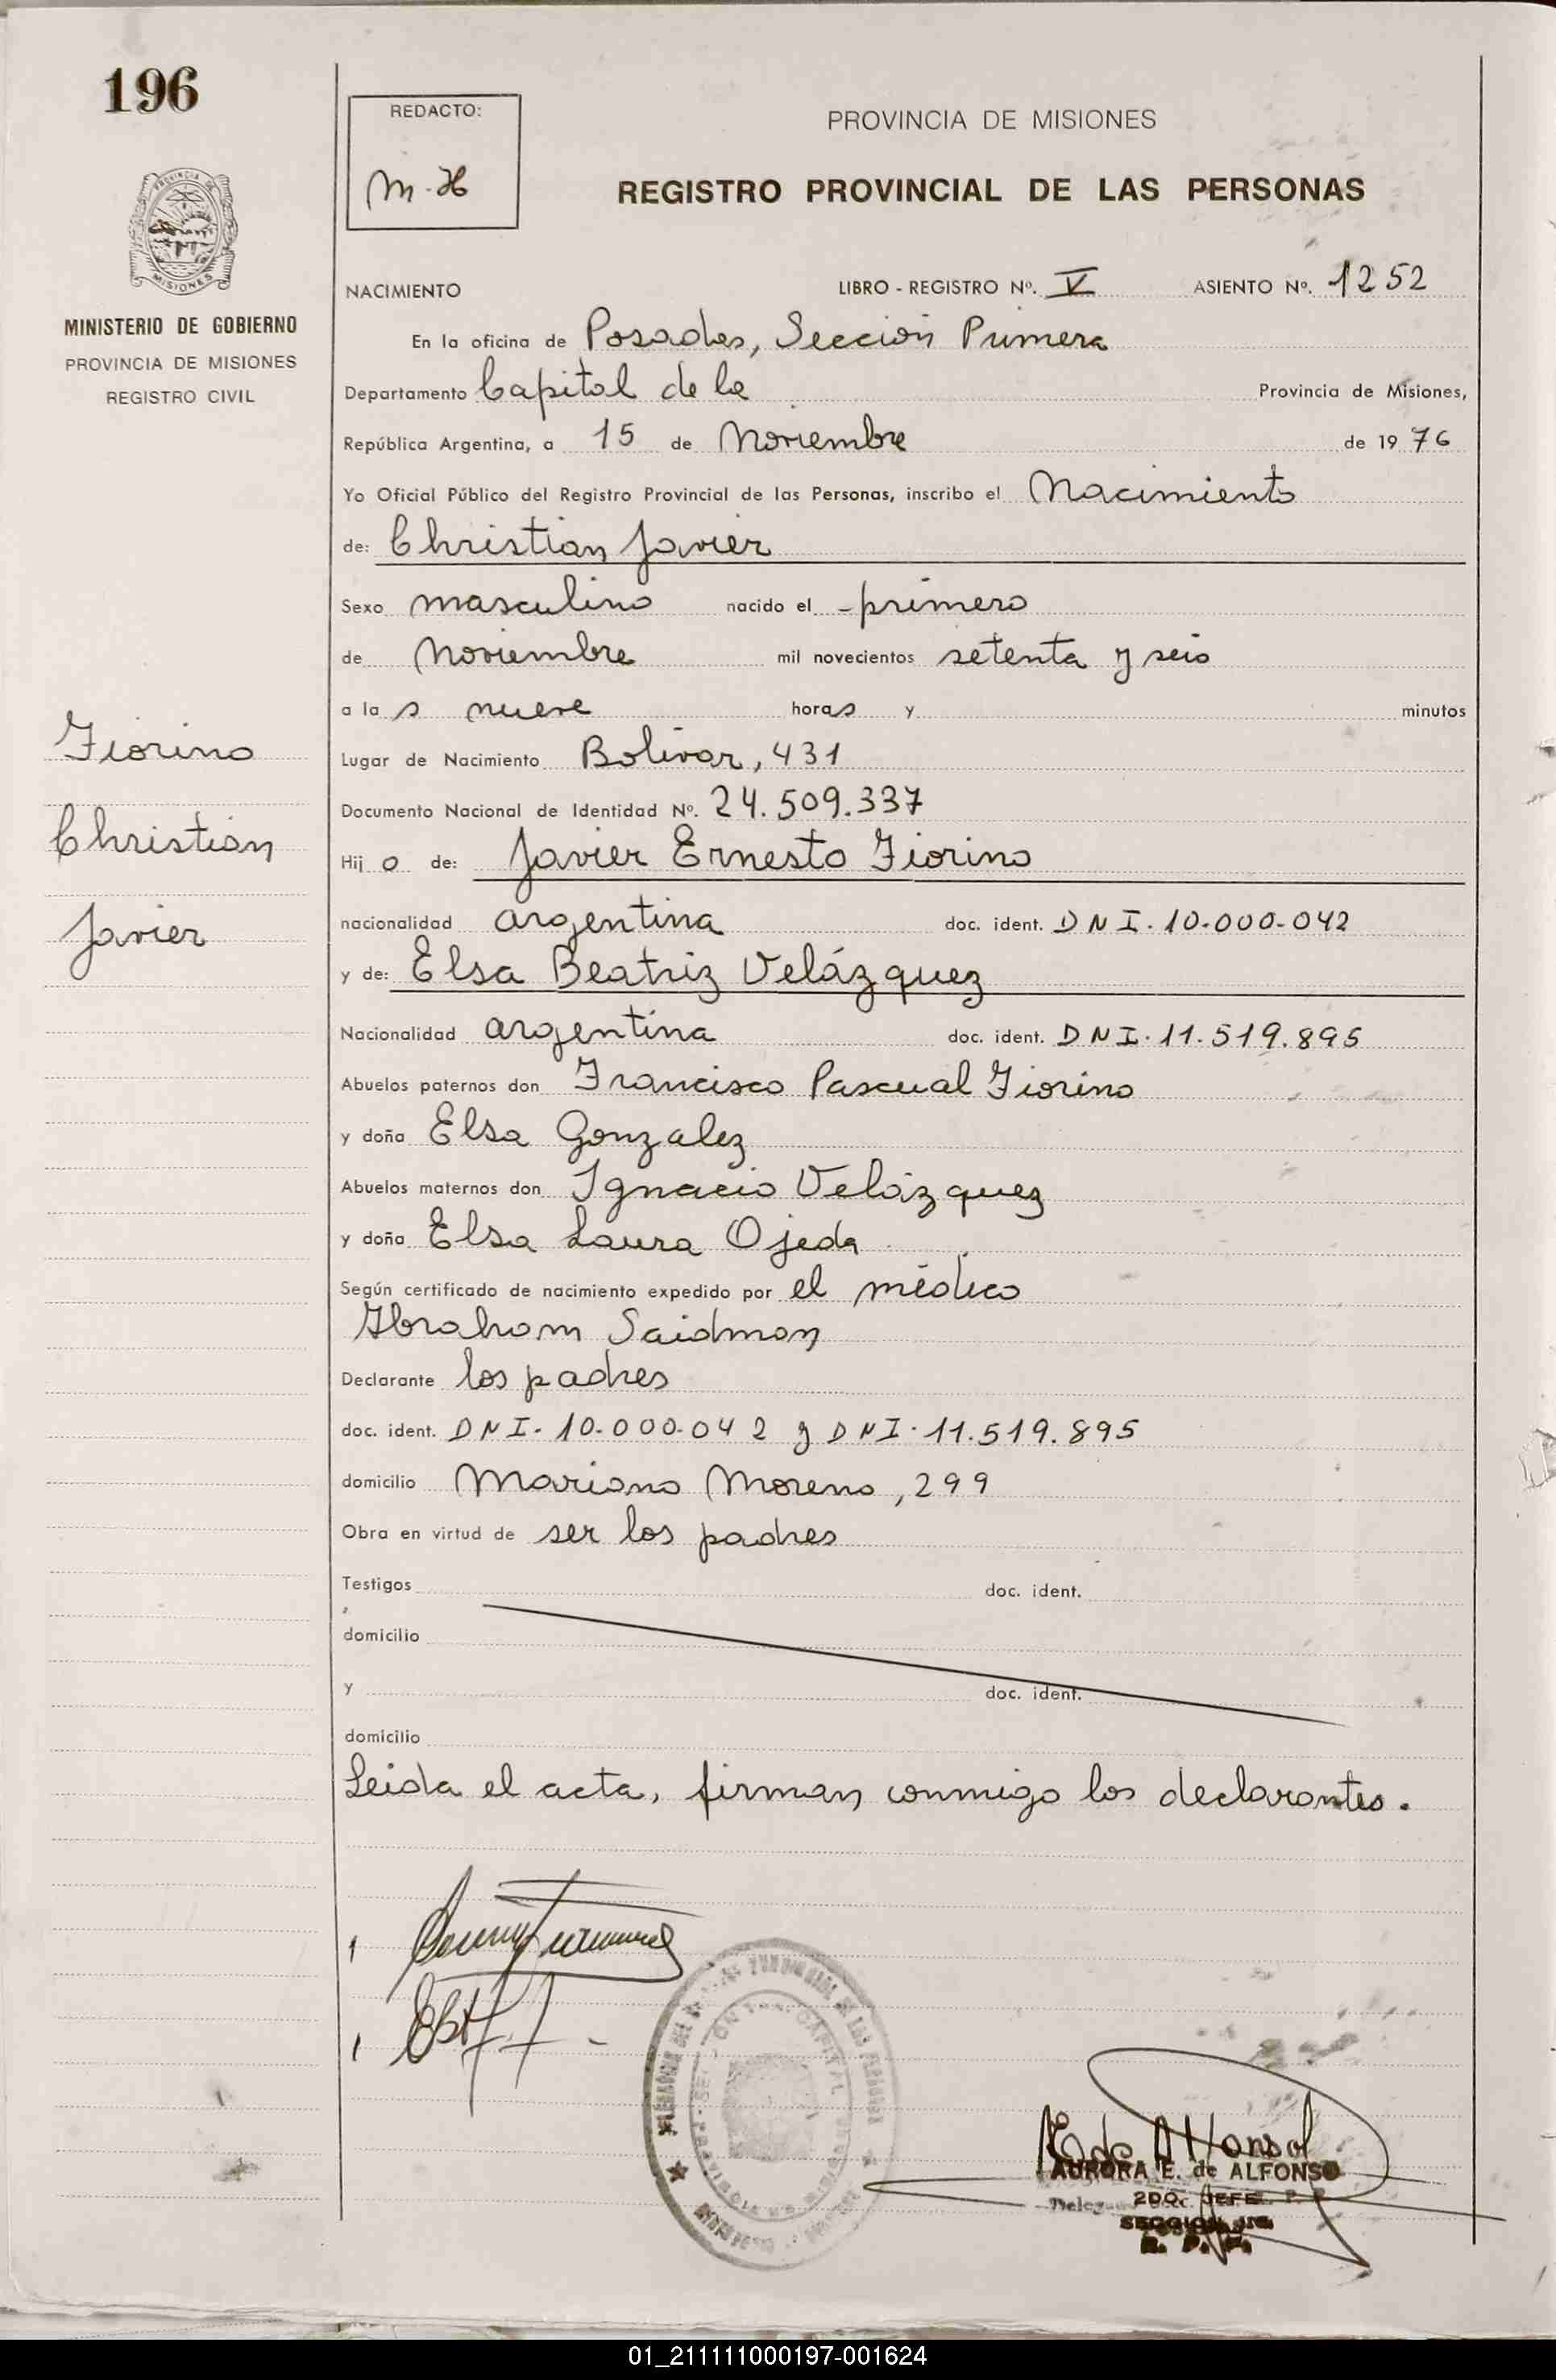 196
REDACTO:
M.H
PROVINCIA DE MISIONES
REGISTRO PROVINCIAL DE LAS PERSONAS
PROVINCIA DE
MISIONES
MINISTERIO DE GOBIERNO
PROVINCIA DE MISIONES
REGISTRO CIVIL
NACIMIENTO LIBRO - REGISTRO Nº. V ASIENTO Nº. 1252
En la oficina de Posadas, Sección Primera
Departamento Capital de la Provincia de Misiones,
República Argentina, a 15 de Noviembre de 1976
Yo Oficial Público del Registro Provincial de las Personas, inscribo el Nacimiento
de: Christian Javier
Sexo masculino nacido el -primero
de Noviembre mil novecientos setenta y seis
a la s nueve horas y minutos
Lugar de Nacimiento Bolívar, 431
Documento Nacional de Identidad Nº. 24.509.337
Hij o de: Javier Ernesto Fiorino
nacionalidad argentina doc. ident. DNI. 10-000-042
y de: Elsa Beatriz Velázquez
Nacionalidad argentina doc. ident. DNI. 11.519.895
Abuelos paternos don Francisco Pascual Fiorino
y doña Elsa Gonzalez
Abuelos maternos don Ignacio Velázquez
y doña Elsa Laura Ojeda
Según certificado de nacimiento expedido por el médico
Abraham Saidman
Declarante los padres
doc. ident. DNI. 10-000-042 y DNI. 11.519.895
domicilio Mariano Moreno, 299
Obra en virtud de ser los padres
Testigos doc. ident.
domicilio
y doc. ident.
domicilio
Leida el acta, firman conmigo los declarantes.
Fiorino
Christian
Javier
AURORA E. de ALFONSO
2DO. JEFE
01_211111000197-001624